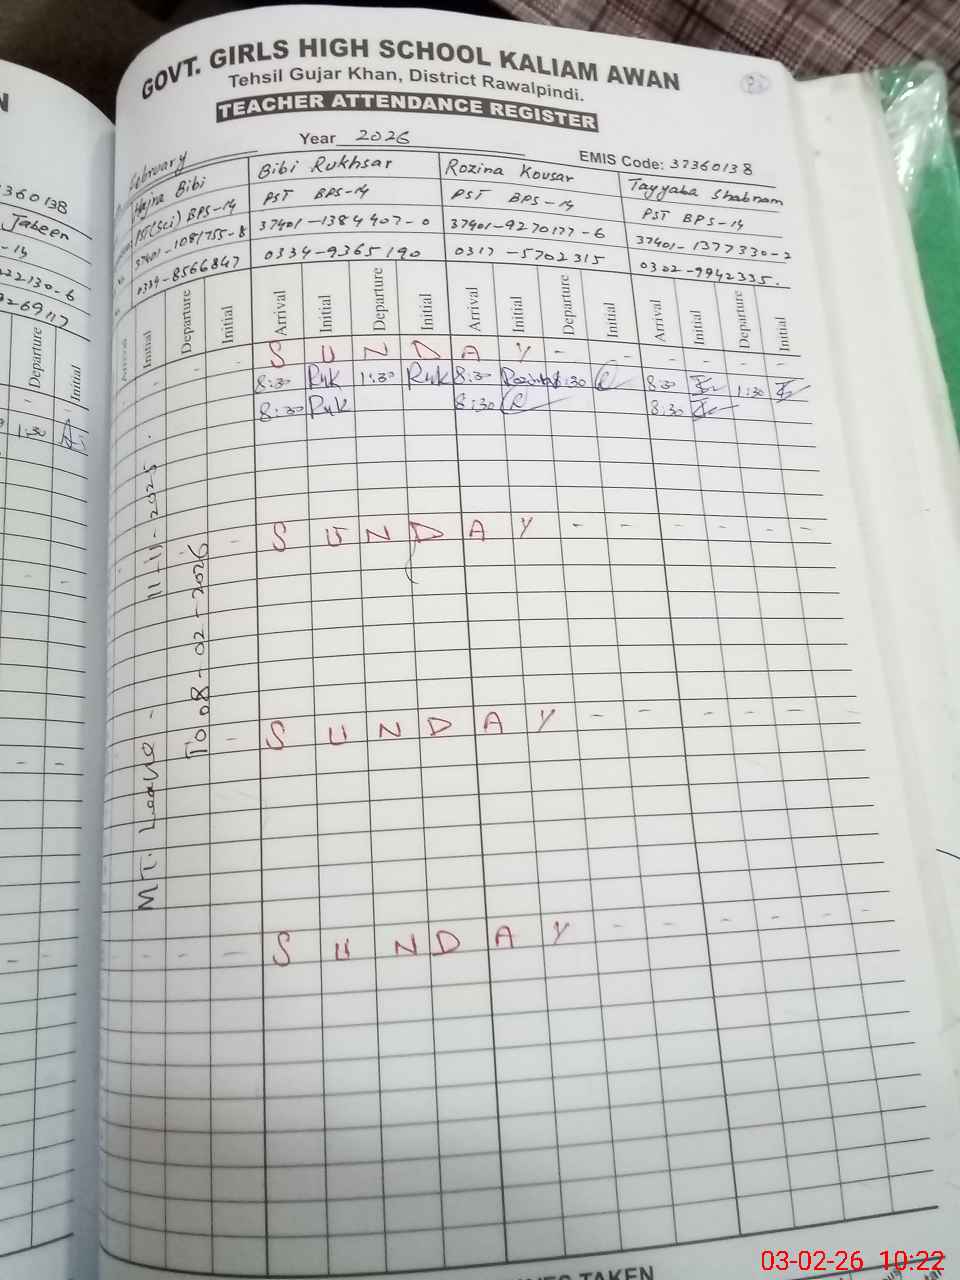 GOVT. GIRLS HIGH SCHOOL KALIAM AWAN
Tehsil Gujar Khan, District Rawalpindi.
TEACHER ATTENDANCE REGISTER
Year 2026
EMIS Code: 37360138
February
Hajra Bibi
PST(Sci) BPS-14
37401-1081755-8
0334-8566847
Bibi Rukhsar
PST BPS-14
37401-1384407-0
0334-9365190
Rozina Kousar
PST BPS-14
37401-9270177-6
0317-5702315
Tayyaba Shabnam
PST BPS-14
37401-1377330-2
0302-9942335.
Arrival Initial Departure Initial Arrival Initial Departure Initial Arrival Initial Departure Initial Arrival Initial Departure Initial
S U N D A Y - - - - - -
8:30 Ruk 1:30 Ruk 8:30 Rozina 1:30 8:30 1:30
8:30 Ruk 8:30 8:30
S U N D A Y - - - - - -
S U N D A Y - - - - - -
S U N D A Y - - - - - -
MTI. Leave - 11-11-2025
To 08-02-2026
360138
Jabeen
-14
222130-6
26917
Departure
Initial
1:30
TAKEN
03-02-26 10:22